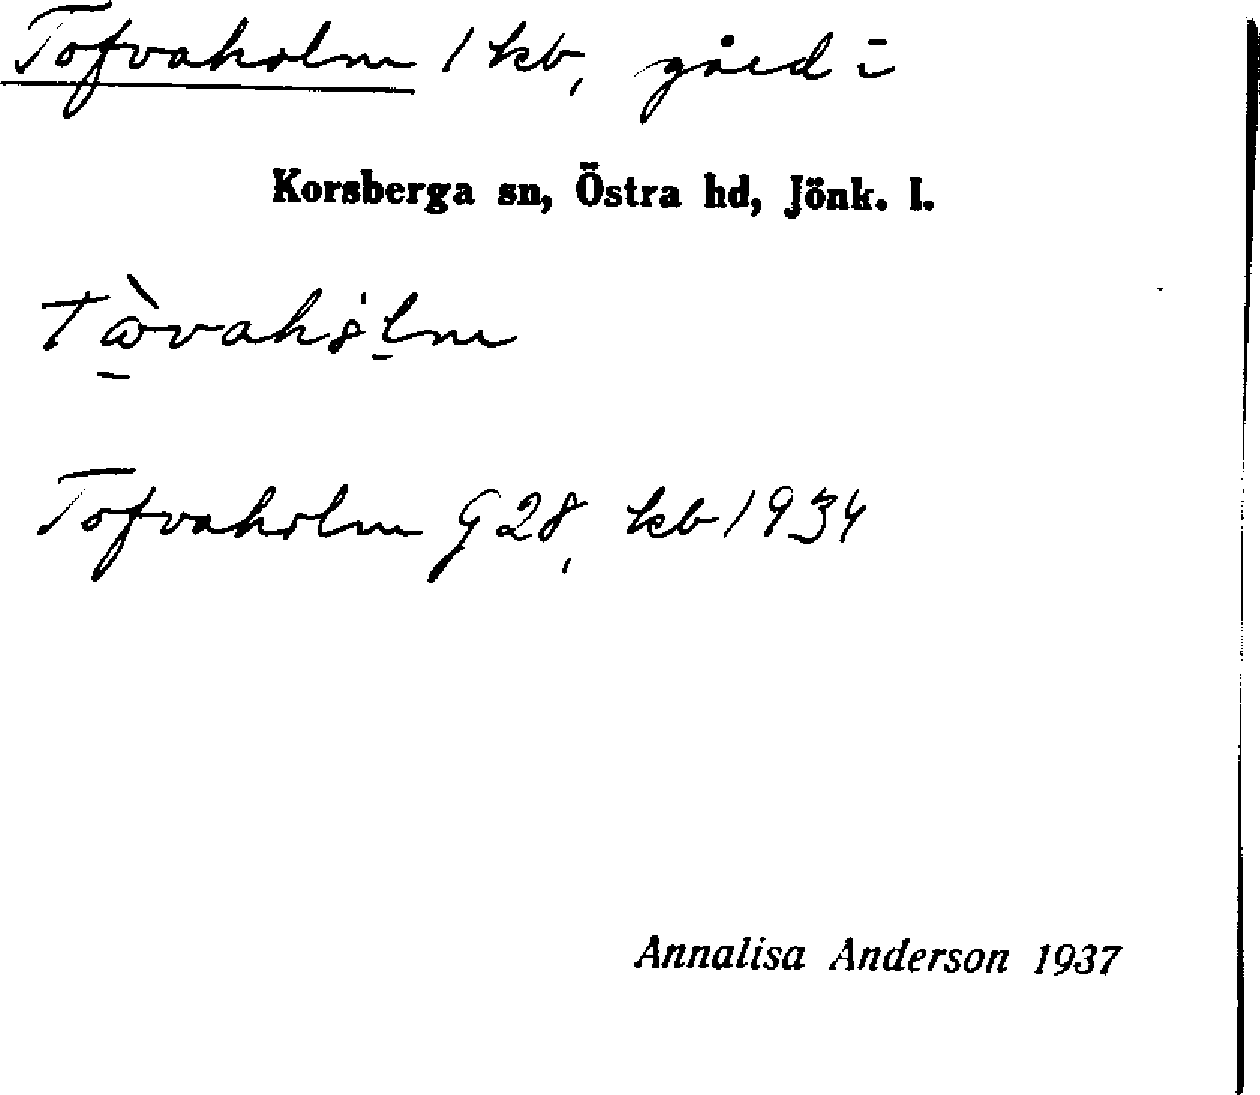 Tofvaholm 1 kb, gård i
Korsberga sn, Östra hd, Jönk. l.
Tofvaholm G28, kb 1934
Annalisa Anderson 1937